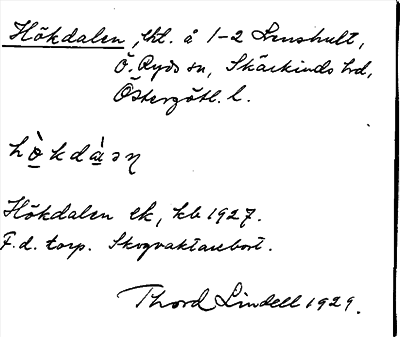 Hökdalen, lht. å 1-2 Lenshult,
Ö. Ryds sn, Skärkinds hd,
Östergötl. l.
hòkdàən
Hökdalen ek, kb 1927.
F.d. torp. Skogvaktarebost.
Thord Lindell 1929.